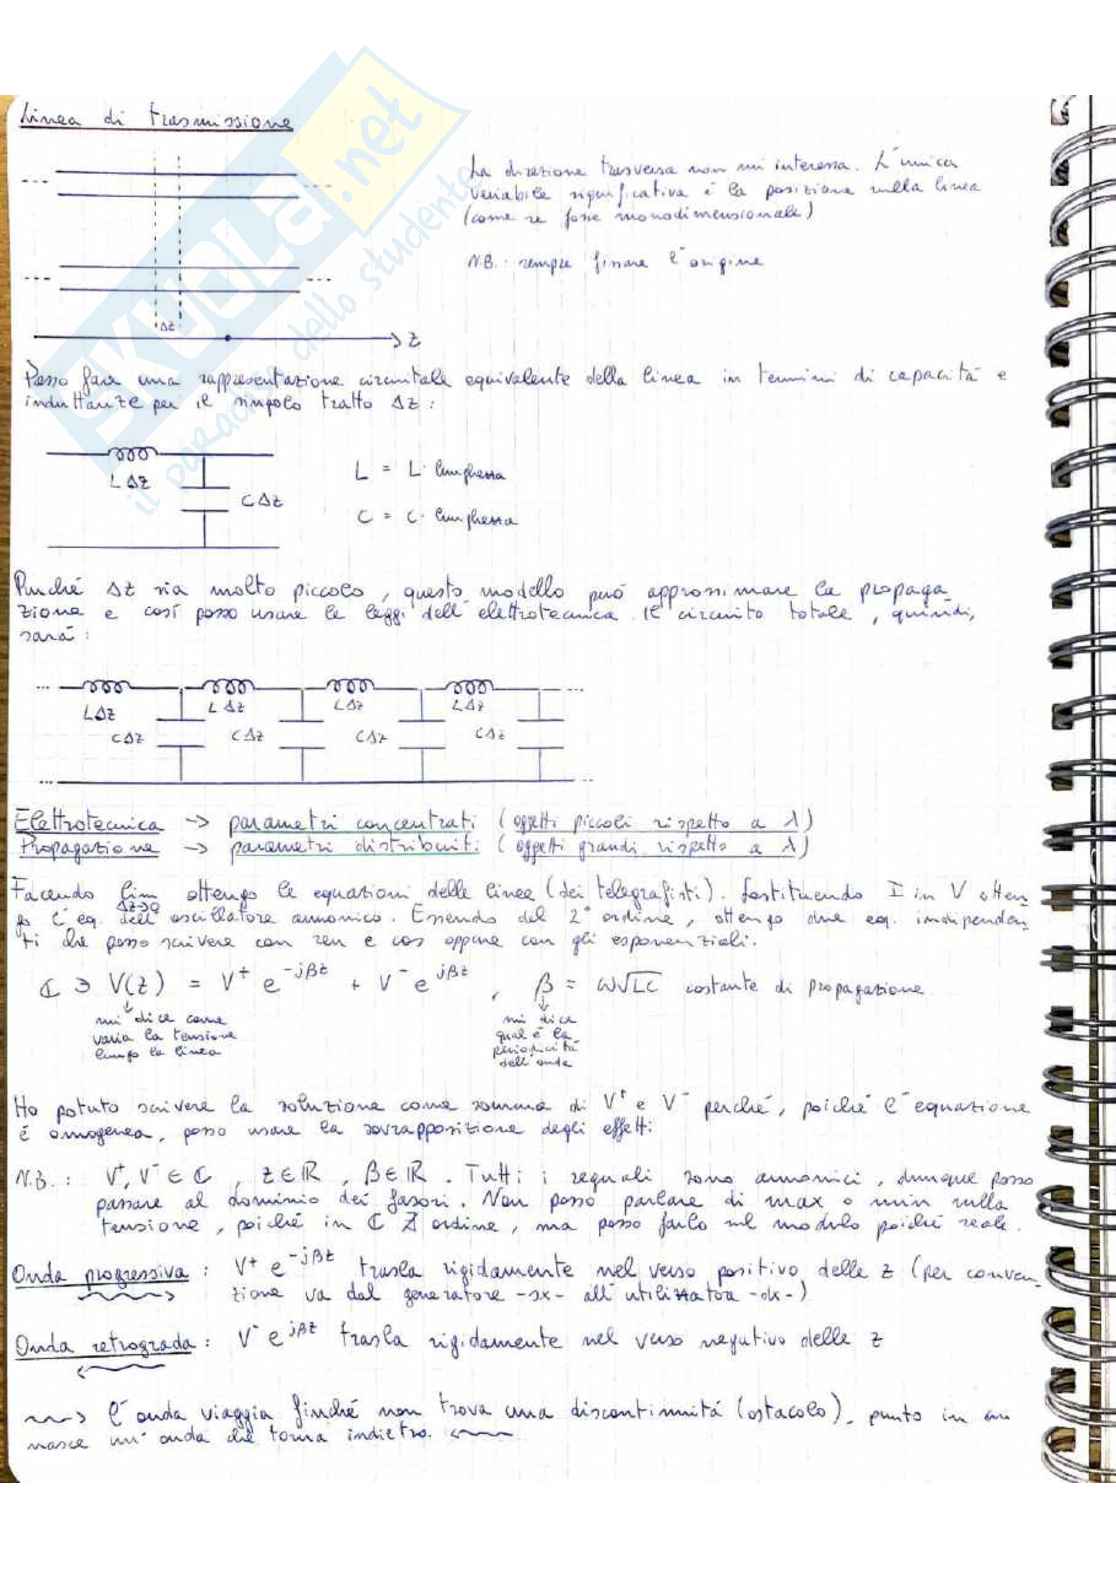 Linea di trasmissione
La direzione trasversa non mi interessa. L'unica
variabile significativa è la posizione sulla linea
(come se fosse monodimensionale)
N.B.: sempre fissare l'origine
ΔZ
Z
Posso fare una rappresentazione circuitale equivalente della linea in termini di capacità e
induttanze per il singolo tratto ΔZ:
LΔZ
CΔZ
L = L · lunghezza
C = C · lunghezza
Purché ΔZ sia molto piccolo, questo modello può approssimare la propaga
zione e così posso usare le leggi dell'elettrotecnica. Il circuito totale, quindi,
sarà:
... ...
LΔZ LΔZ LΔZ LΔZ
CΔZ CΔZ CΔZ CΔZ
... ...
Elettrotecnica -> parametri concentrati (oggetti piccoli rispetto a λ)
Propagazione -> parametri distribuiti (oggetti grandi rispetto a λ)
Facendo lim ΔZ→0 ottengo le equazioni delle linee (dei telegrafisti). Sostituendo I in V otten
go l'eq. dell'oscillatore armonico. Essendo del 2° ordine, ottengo due eq. indipenden
ti che posso scrivere con sen e cos oppure con gli esponenziali.
ℂ ∋ V(z) = V⁺ e^{-jβz} + V⁻ e^{jβz} , β = ω√LC costante di propagazione
mi dice come
varia la tensione
lungo la linea
mi dice
qual è la
periodicità
dell'onda
Ho potuto scrivere la soluzione come somma di V⁺ e V⁻ perché, poiché l'equazione
è omogenea, posso usare la sovrapposizione degli effetti
N.B.: V⁺, V⁻ ∈ ℂ , z ∈ ℝ , β ∈ ℝ . Tutti i segnali sono armonici, dunque posso
passare al dominio dei fasori. Non posso parlare di max o min sulla
tensione, poiché in ℂ ∄ ordine, ma posso farlo sul modulo poiché reale.
Onda progressiva : V⁺ e^{-jβz} trasla rigidamente nel verso positivo delle z (per conven
zione va dal generatore -sx- all'utilizzatore -dx-)
Onda retrograda : V⁻ e^{jβz} trasla rigidamente nel verso negativo delle z
~~> l'onda viaggia finché non trova una discontinuità (ostacolo), punto in cui
nasce un'onda che torna indietro. <~~
SKUOLA.net
il paradiso dello studente